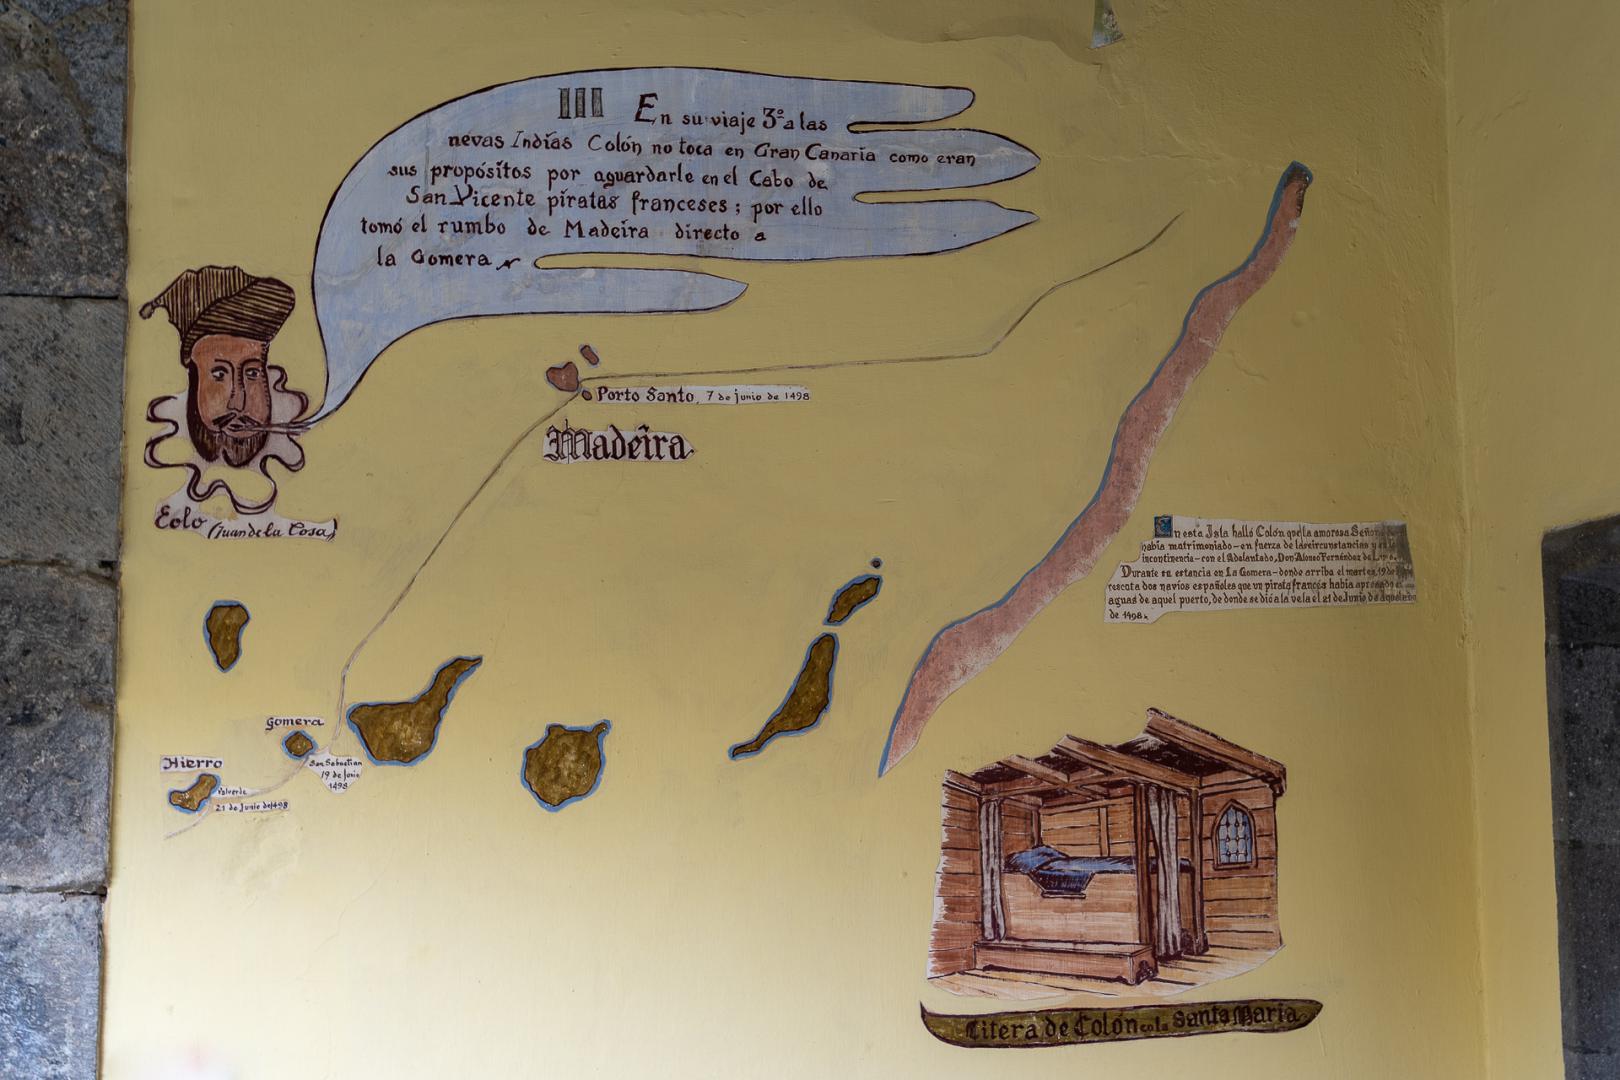 III En su viaje 3º a las
nevas Indias Colón no toca en Gran Canaria como eran
sus propósitos por aguardarle en el Cabo de
San Vicente piratas franceses; por ello
tomó el rumbo de Madeira directo a
la Gomera
Porto Santo, 7 de junio de 1498
Madeira
Eolo (Juan de la Cosa)
En esta Isla halló Colón que la amorosa Señora
había matrimoniado-en fuerza de las circunstancias y
incontinencia-con el Adelantado, Don Alonso Fernández de Lugo.
Durante su estancia en La Gomera-donde arriba el martes, 19 de
rescata dos navíos españoles que un pirata francés había apresado en
aguas de aquel puerto, de donde se dió a la vela el 21 de Junio de aquel año
de 1498
Gomera
San Sebastian
19 de Junio
1498
Hierro
Valverde
21 de Junio de 1498
Litera de Colón en la Santa Maria